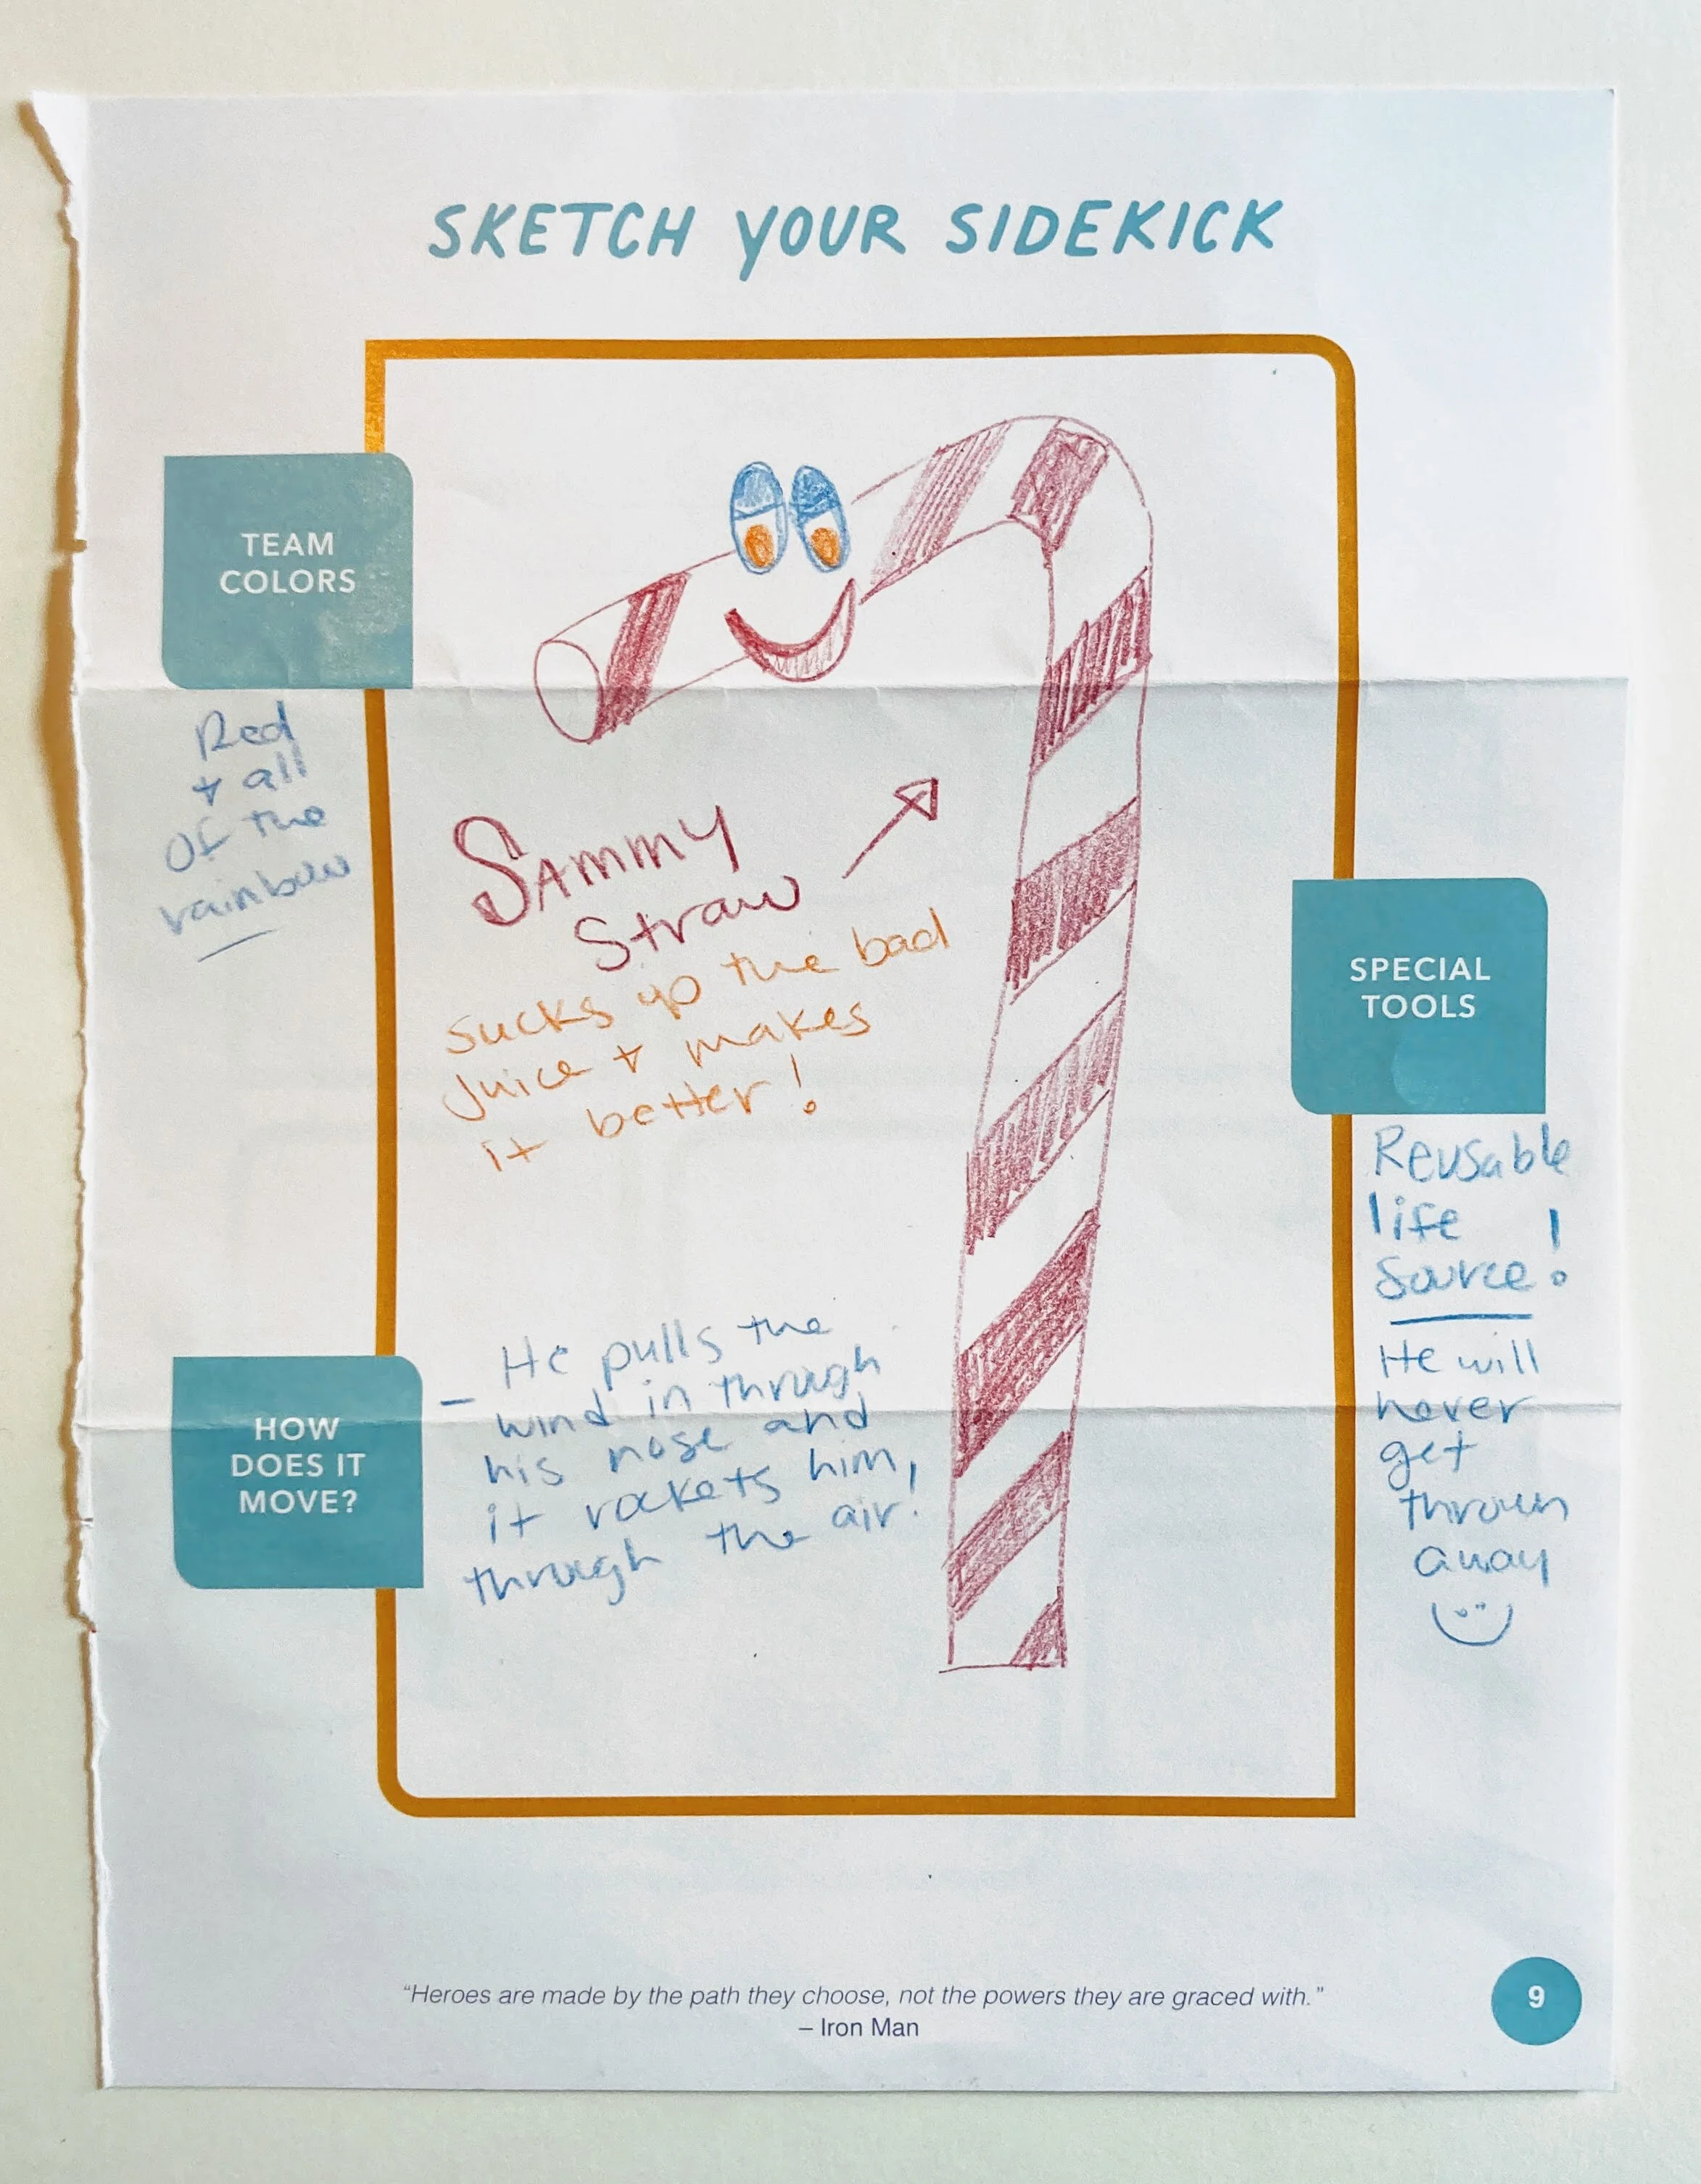 SKETCH YOUR SIDEKICK
TEAM
COLORS
Red
+ all
of the
rainbow
Sammy
Straw
sucks up the bad
juice + makes
it better!
SPECIAL
TOOLS
Reusable
life
source!
He will
never
get
thrown
away
HOW
DOES IT
MOVE?
– He pulls the
wind in through
his nose and
it rockets him,
through the air!
“Heroes are made by the path they choose, not the powers they are graced with.”
– Iron Man
9